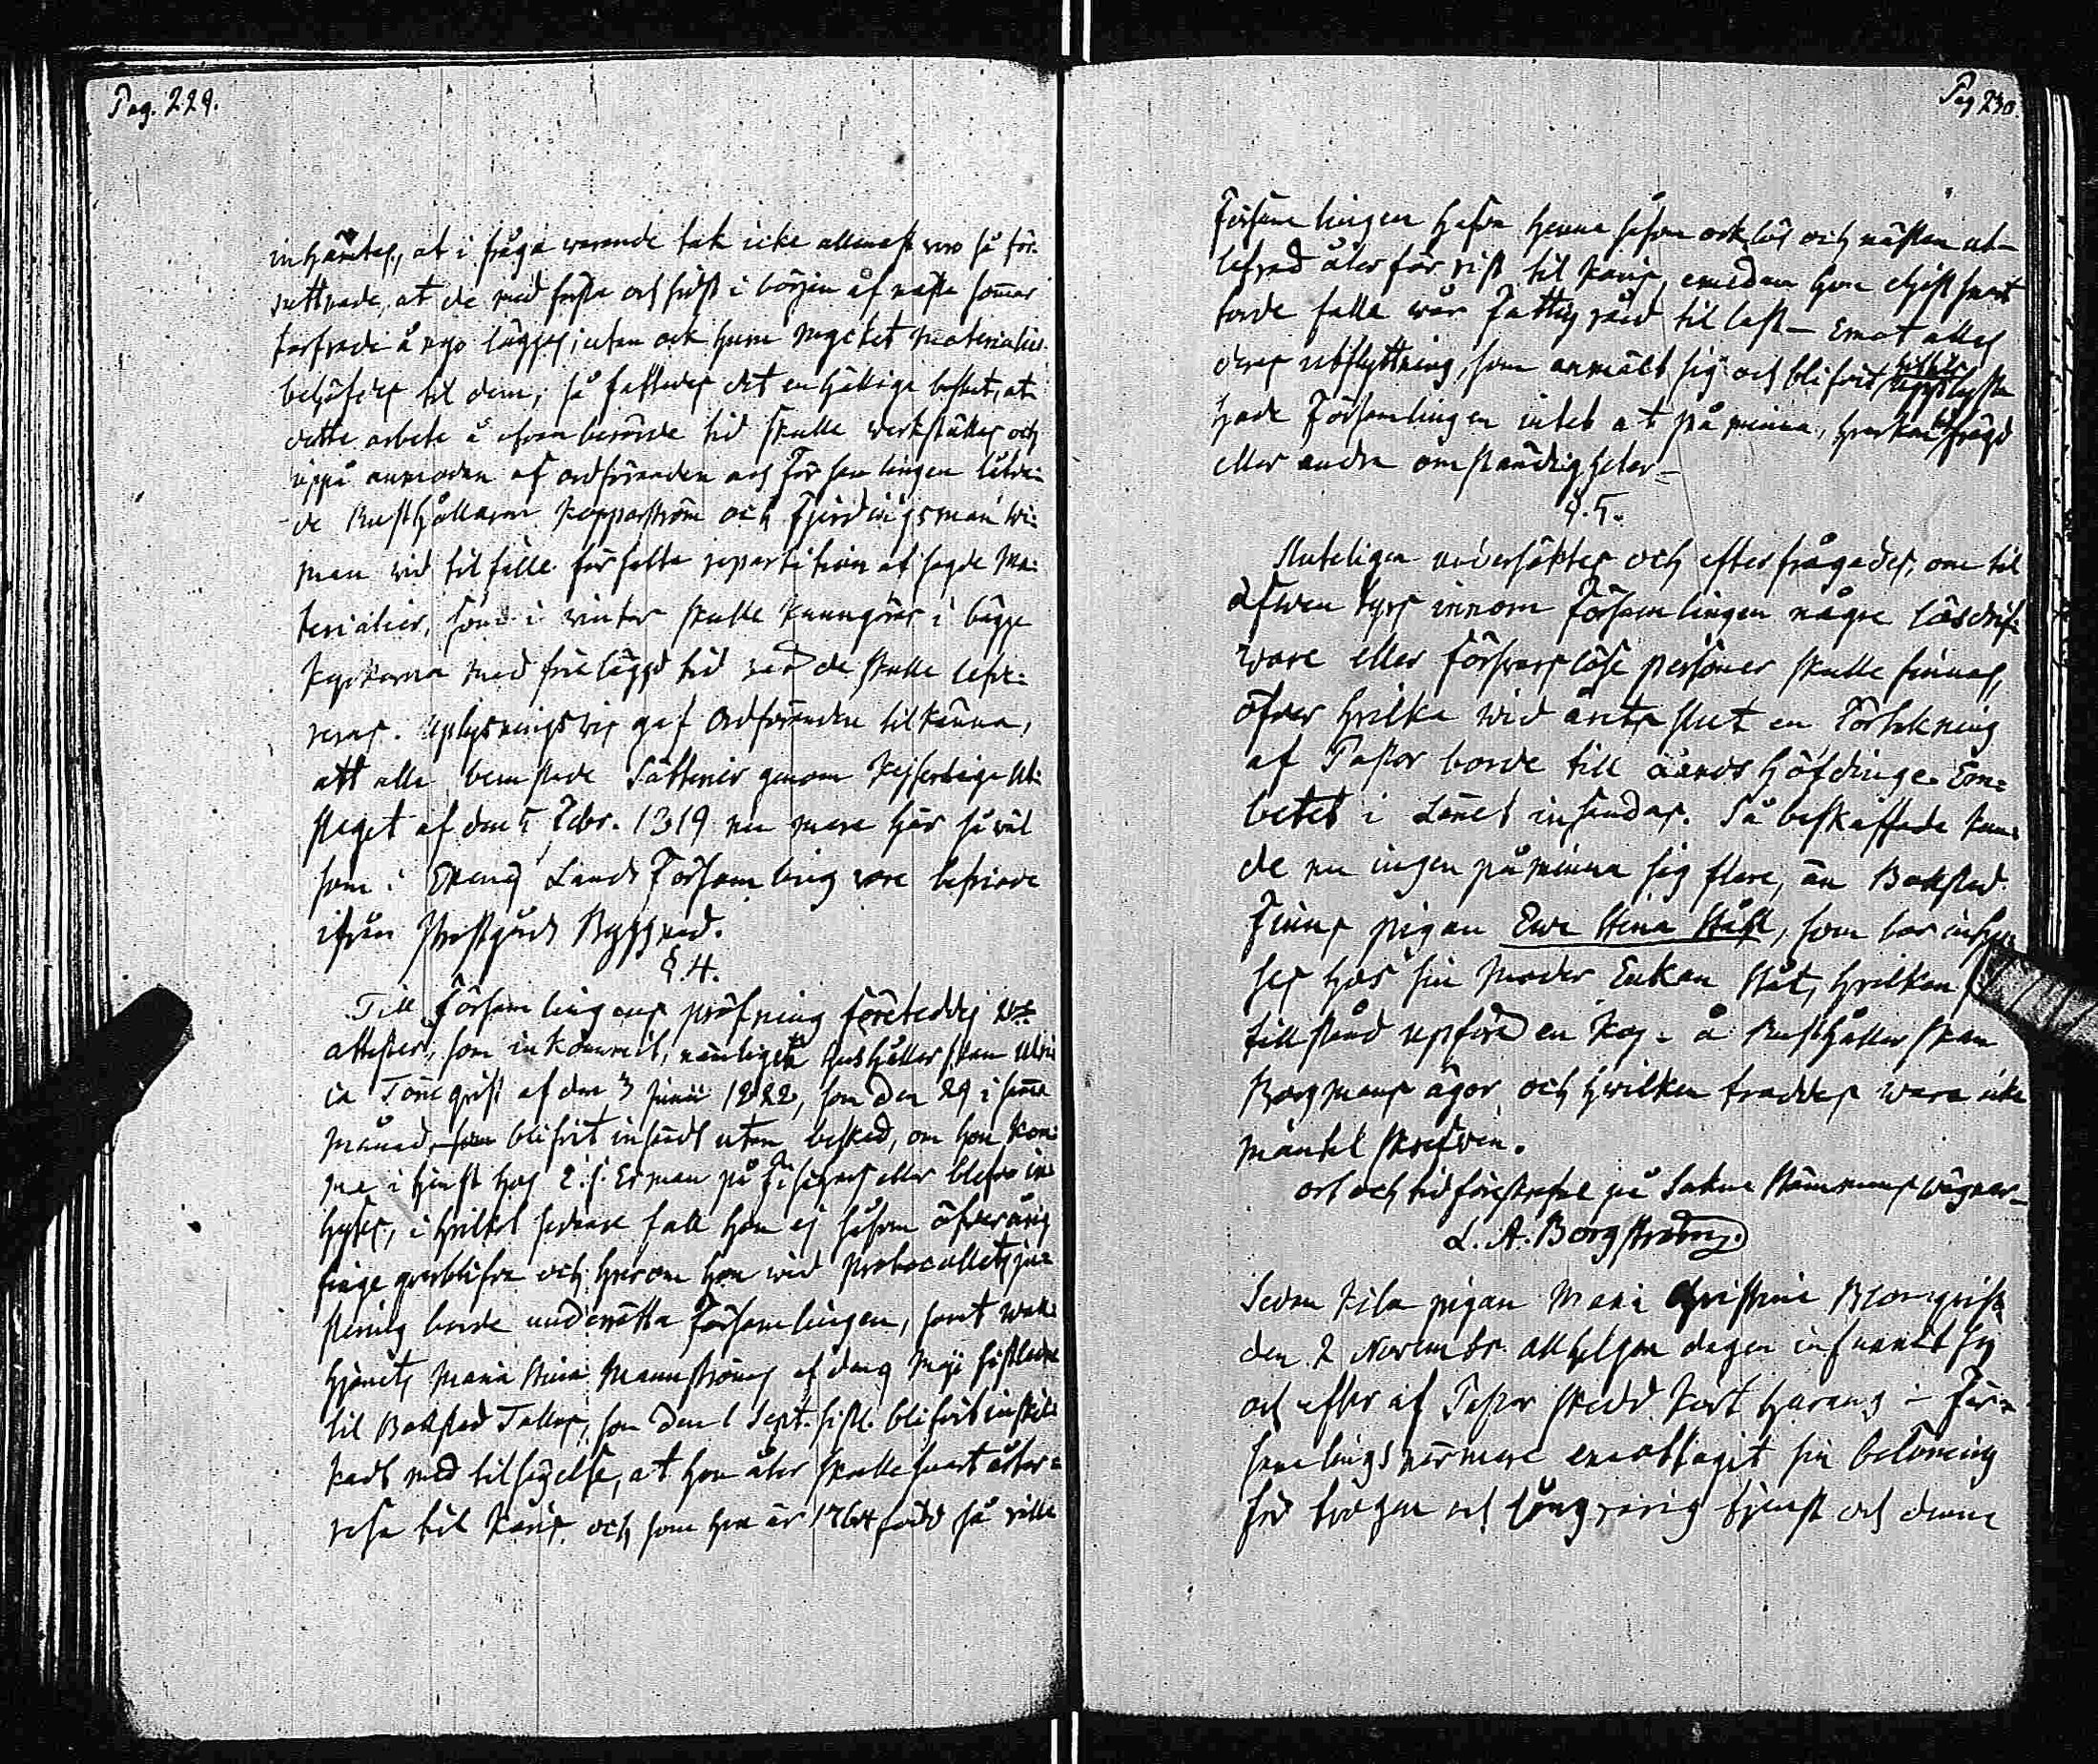 Pag. 229.
inhämtas, at i fråga warande tak icke allenast woro så för-
ruttnade, at de med första och sidst i början af nästa sommar
torfwade å nyo läggas, utan ock huru mycket Materialier
behöfdes til dem; så fattades det enhälliga beslut, at
dette arbete å ofvanberörde tid skulle werkställas och
uppå anmodan af ordföranden och Församlingen lofwa-
de Rusthållaren Kopparström och Fjerdingsman Wi-
man wid tilfälle författa repartition af sagde Ma-
terialier, som i winter skulle kunngöras i bägge
Kyrkorna med förelaggd tid när de skulle lefwe-
reras. Uplysningswis gaf Ordföranden tilkänna,
att alla bemälde Säterier genom Kejserliga Ut-
slaget af den 5 Febr. 1819 nu mera här så wäl
som i Ekenäs Lands Församling wore befriade
ifrån Prestgårds Byggnad.
§. 4.
Till Församlingens pröfning företeddes de
attester, som inkommit, nämligen Hushållerskan Ulri-
ca Törnqvist af den 3 Junii 1822, som den 29 i samma
Månad blifvit insänds utan besked, om hon kom-
me i tjenst hos Erman på eller blefwe in-
hyses, i hvilket sednare fall hon ej såsom öfweråring
finge qwarblifwa och hwarom hon wid Protocollets ju-
stering borde underrätta Församlingen, samt
Maria Stina Mannström af den 9 Maji sistledne
til Bakstad Tallas, som den 1 Sept. sistl. blifvit
med tilsägelse, at hon åter skulle snart åter-
resa til Karis och som hon är 1764 född så wille
Pag 230.
Församlingen hafwa henne såsom orklös och nästan ut-
lefwad åter förwist til Karis, emedan hon eljest snart
torde falla wår Fattigwård til last - Emot allas
deras utflyttning, som anmält sig och blifwit
hade Församlingen intet at påminna, hwarken
eller andra omständigheter -
§. 5.
Sluteligen undersöktes och efterfrågades, om til
äfwentyrs innom Församlingen några lösdrif-
ware eller förswarslöse personer skulle finnas,
öfwer hwilka wid årets slut en Förtekning
af Pastor borde till Lands Höfdinge Em-
betet i Länet insändas. Så beskaffade kun-
de nu ingen påminna sig flere, än Bakstad
Finns pigan Ewa Stina Ståhl, som bor inhy-
ses hos sin Moder Enkan Ståhl, hwilken
tillstånd upförd en Koj å Rusthållerskan
Bergmans ägor och hwilken troddes wara icke
mantals skrefwen.
ort och tid förestafwe på Sakne Stämmans wägnar -
L. A. Borgström
Sedan pigan Maria Christina Blomqvist
den 2 Novembr. Allhelgona dagen infunnit sig
och efter af Pastor skedd kort harang i För-
samlings närwaro emottagit sin belöning
för trogen och långwarig tjenst och denne